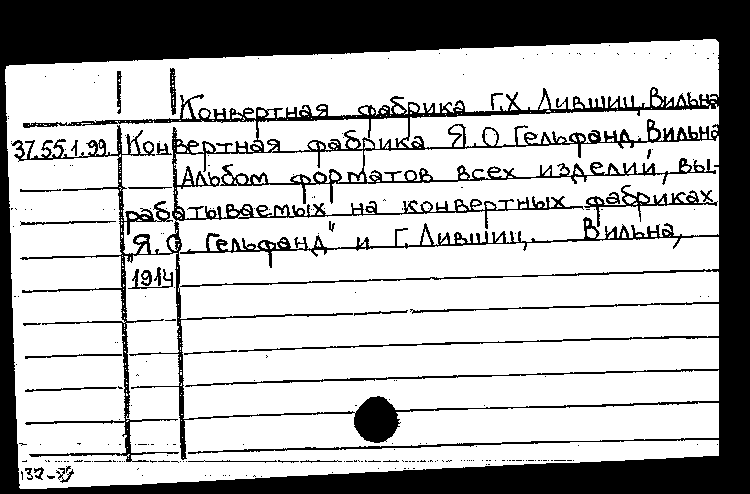 Конвертная фабрика Г.Х. Лившиц, Вильна
37.55.1.99. Конвертная фабрика Я.О Гельфанд, Вильна
Альбом форматов всех изделий, вы-
рабатываемых на конвертных фабриках
"Я.О. Гельфанд" и Г. Лившиц. Вильна,
1914